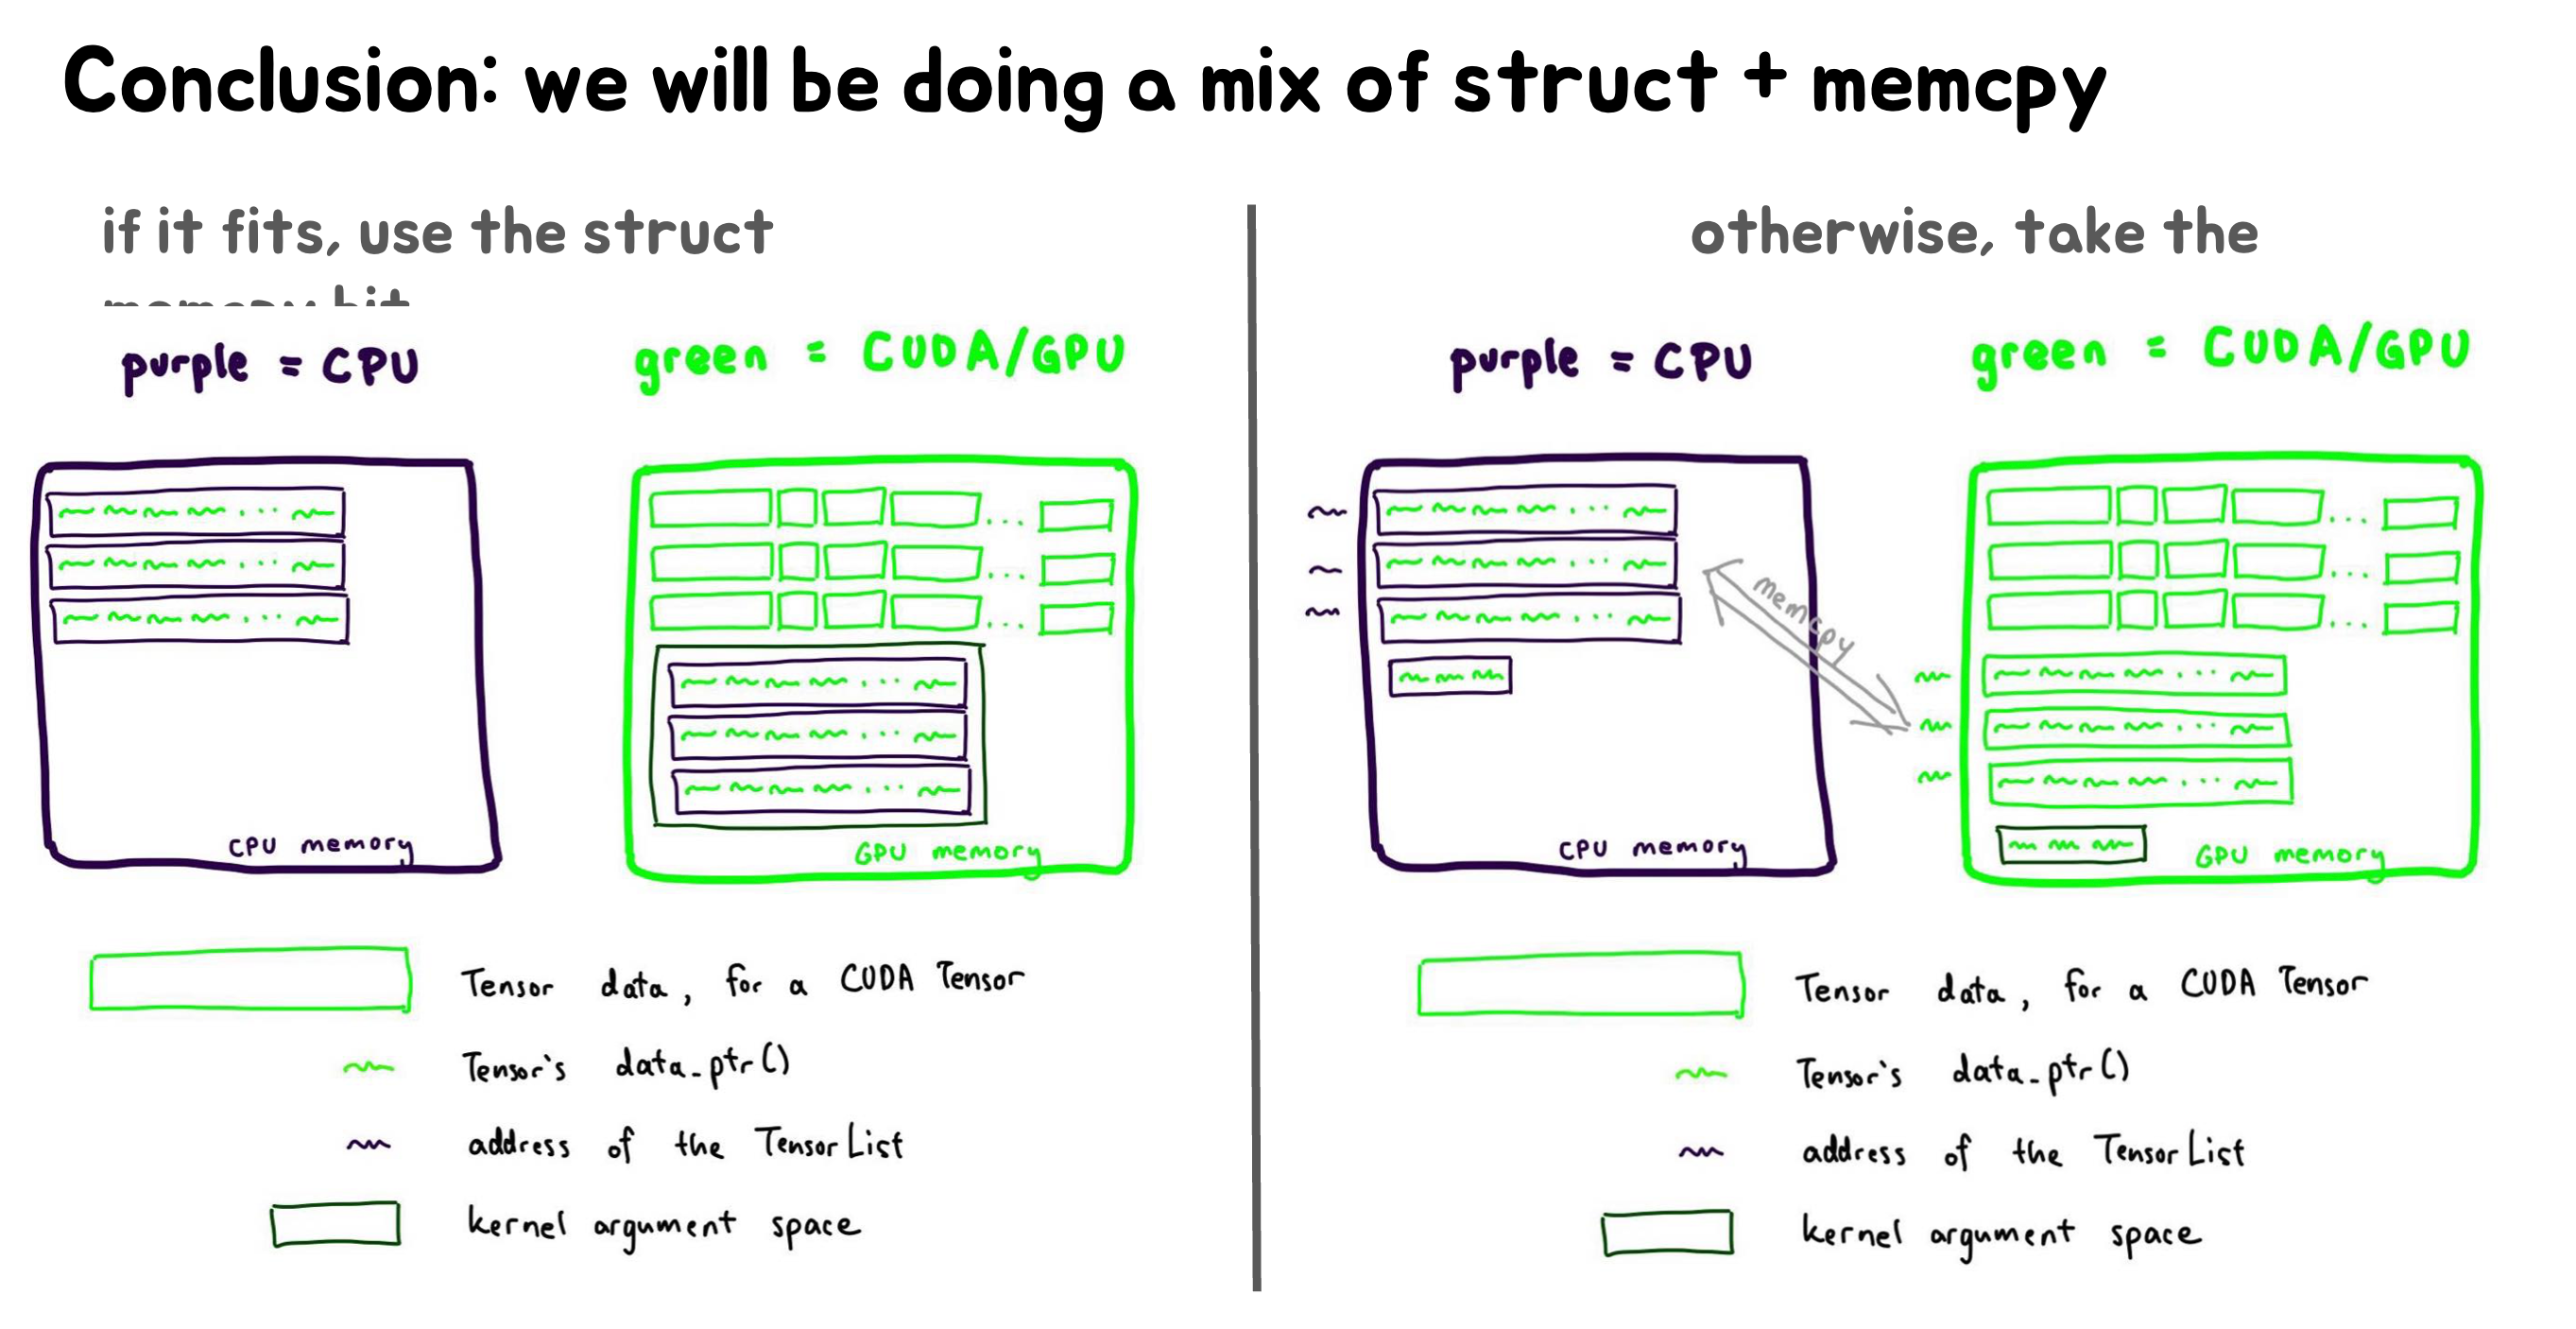 Conclusion: we will be doing a mix of struct + memcpy
if it fits, use the struct
otherwise, take the
memcpy hit
purple = CPU
green = CUDA/GPU
CPU memory
GPU memory
Tensor data, for a CUDA Tensor
Tensor's data_ptr()
address of the TensorList
kernel argument space
purple = CPU
green = CUDA/GPU
memcpy
CPU memory
GPU memory
Tensor data, for a CUDA Tensor
Tensor's data_ptr()
address of the TensorList
kernel argument space